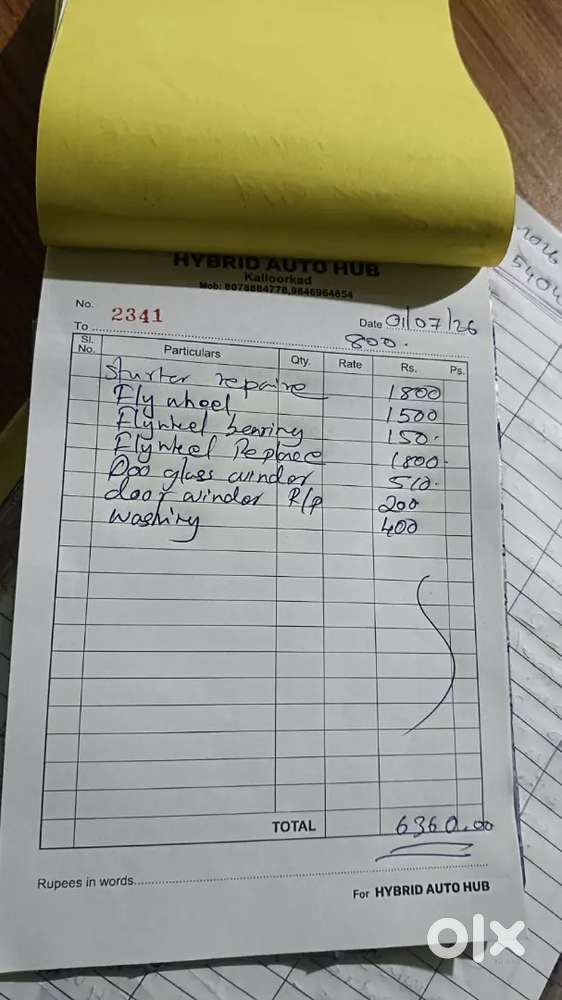 HYBRID AUTO HUB
Kalloorkad
Mob: 8078884778,9846964854
No. 2341
Date 01/07/26
To
800.
Sl. No. Particulars Qty. Rate Rs. Ps.
Sturter repaire 1800
Fly wheel 1500
Flywheel bearing 150.
Flywheel Replace 1800.
Doo glass windor 510.
door windor R/p 200
washing 400
TOTAL 6360.00
Rupees in words
For HYBRID AUTO HUB
5404
olx